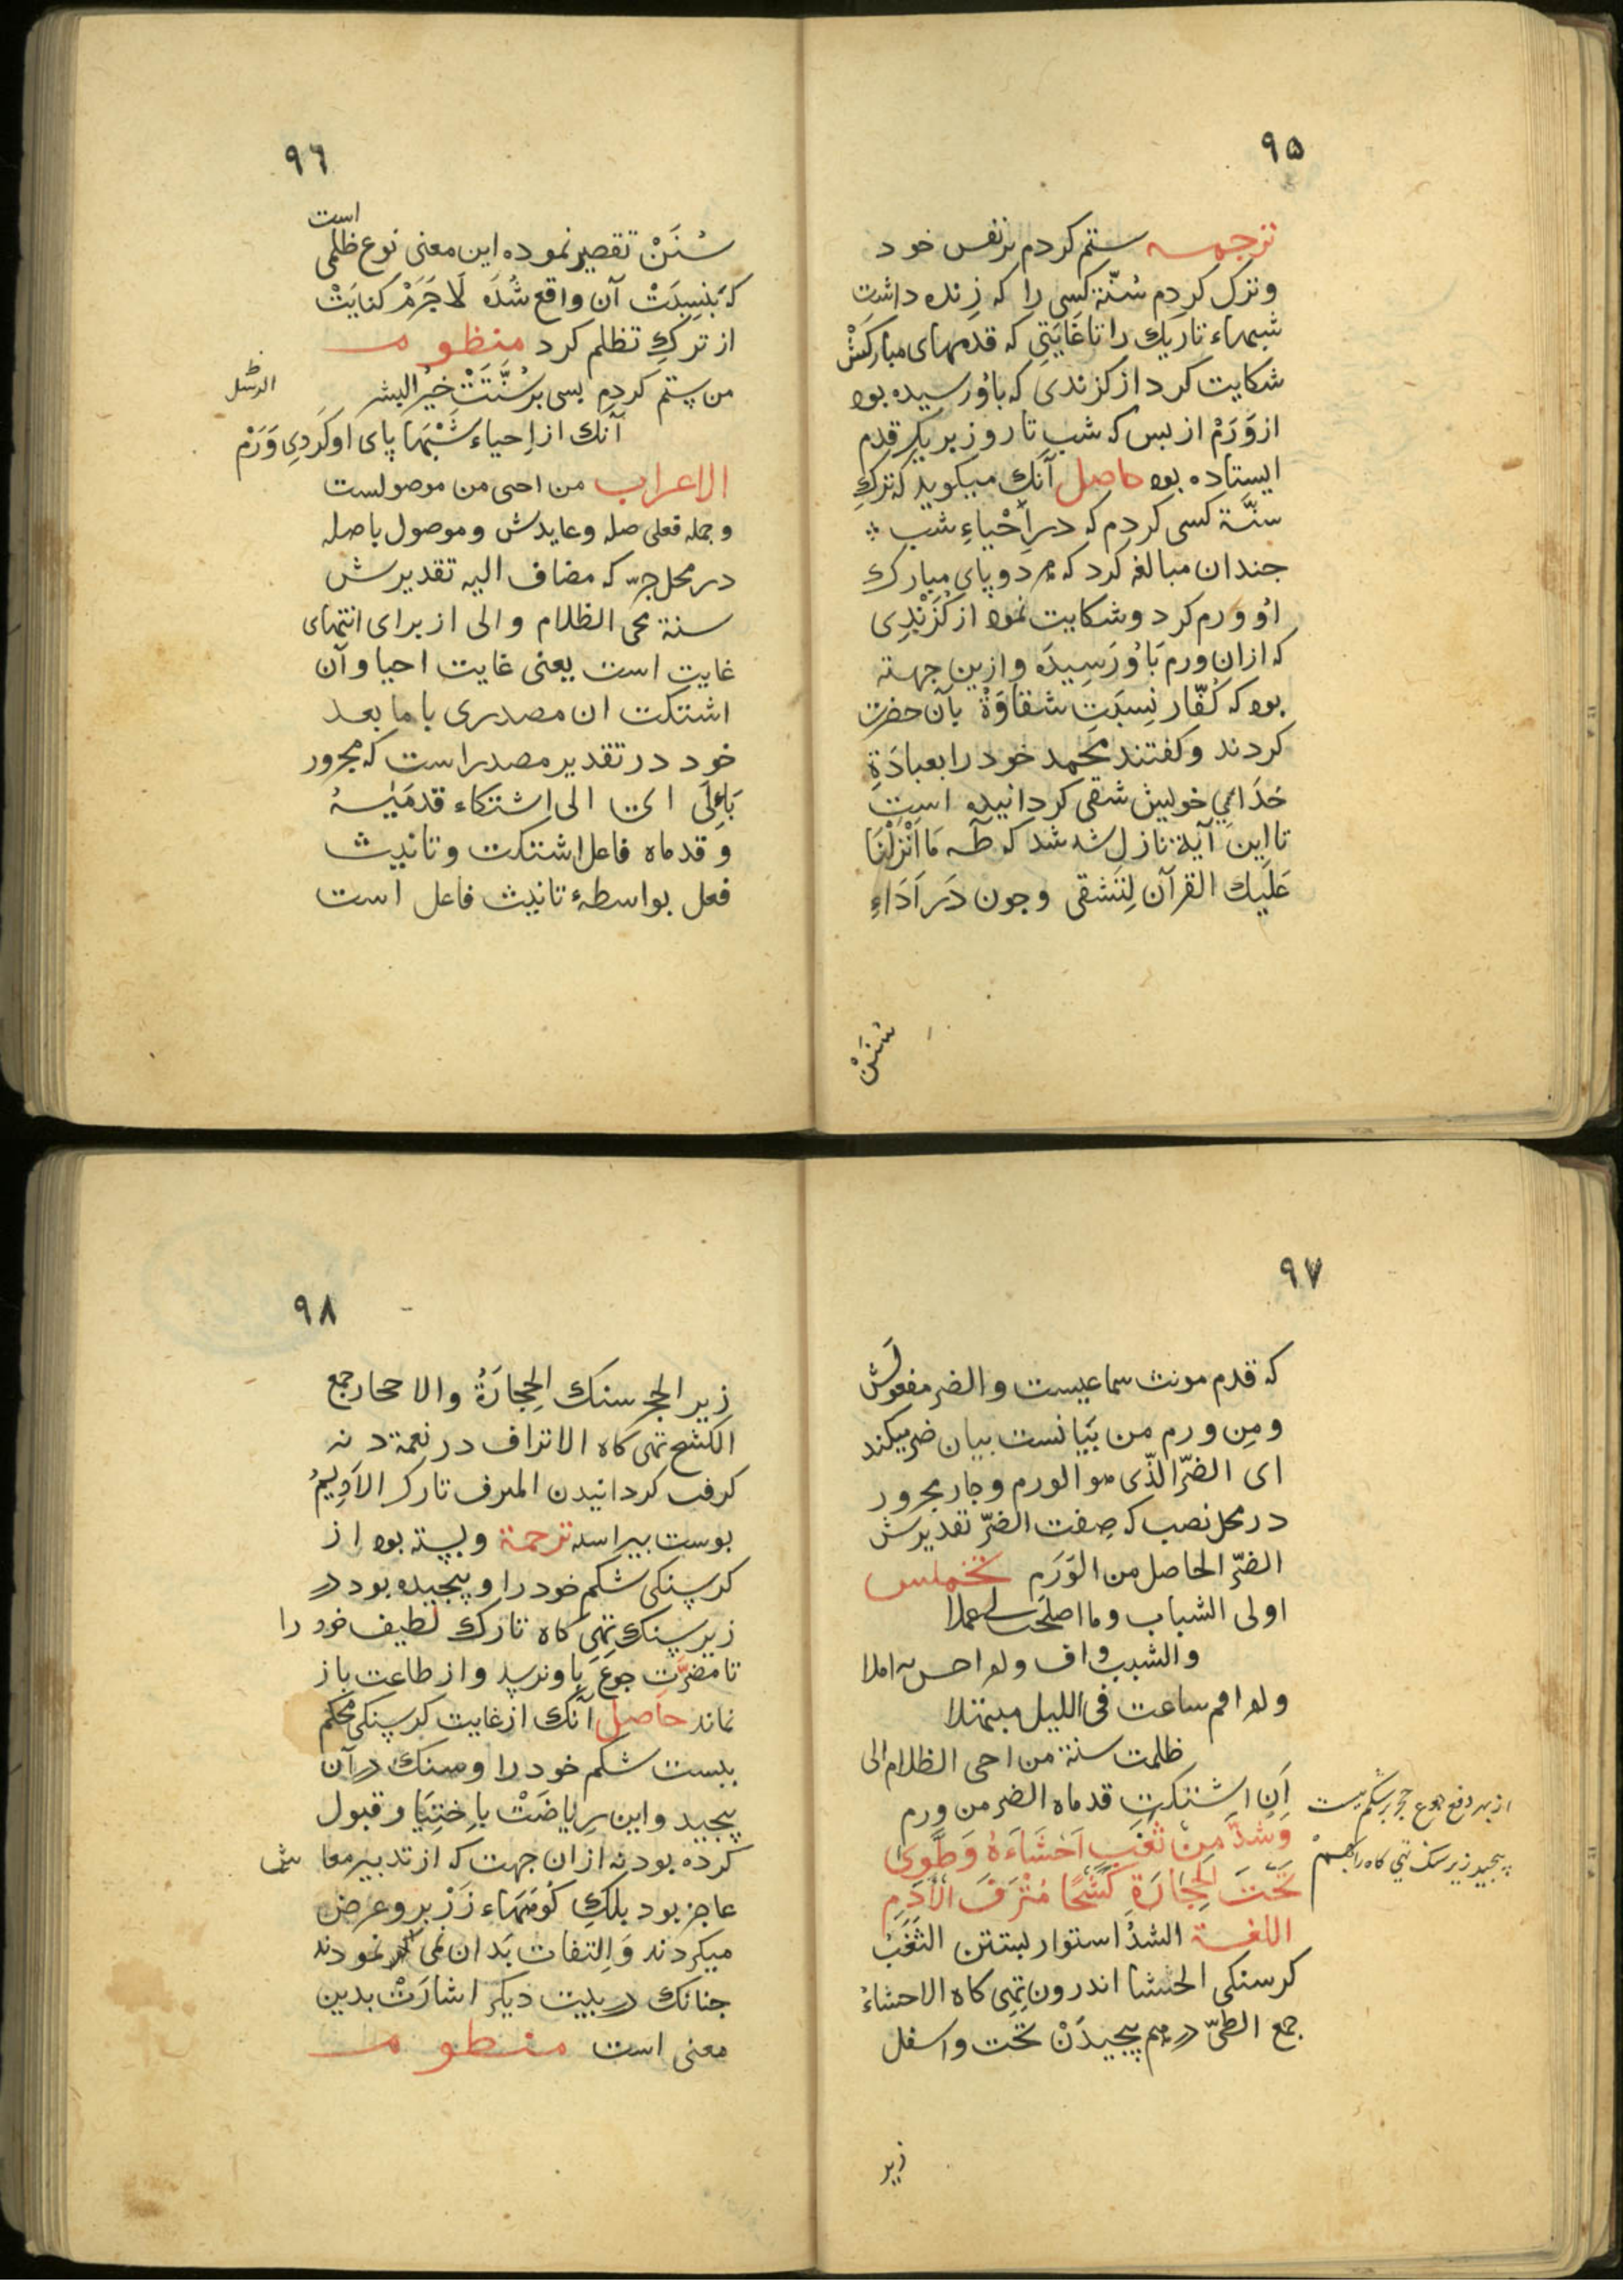 ٩٥
ترجمه ستم کردم بر نفس خود
وترک کردم سُنّة کسی را که زنده داشت
شبهاء تاریک را تا غایتی که قدمهای مبارکش
شکایت کرد از کزندی که باو رسیده بود
از وَرَمْ از بس که شب تا روز بر یک قدم
ایستاده بود حاصل آنک میکوید که ترک
سنّة کسی کردم که در اِحْیاءِ شب
جندان مبالغه کرد که هر دو پای مبارک
او ورم کرد و شکایت نمود از کَزَنْدِی
که ازان ورم بَاُو رَسِیدَه وازین جهته
بود که کُفّار نِسبَتِ شقاوَة بآن حضرت
کردند و کفتند محمد خود را بعبادَةِ
خدَای خویش شقی کردانیده است
تا این آیة نازل شد که طه مَا اَنْزَلْنَا
عَلَیك القرآن لِتَشقی وجون دَر اَدَاءِ
سُنَنْ
٩٦
سُنَنْ تقصیر نموده این معنی نوع ظلمی است
که بنِسبَتْ آن واقع شُدَه لَا جَرَمْ کنایَتْ
از ترکِ تظلم کرد منظومه
من ستم کردم بسی بر سُنَّتِ خیرُ البشر
آنك از اِحیاء شَبْهَا پای او کَردِی وَرَمْ
الاعراب من احی من موصولست
وجمله فعلی صله وعایدش وموصول باصله
در محل جرّ که مضاف الیه تقدیرش
سنة محی الظلام والی از برای انتهای
غایت است یعنی غایت احیا وآن
اشتکت ان مصدری با ما بعد
خود در تقدیر مصدر است که مجرور
بَاِلَی ای الی اشتکاء قدمَیْهُ
وقدماه فاعل اشتکت وتانیث
فعل بواسطهٔ تانیث فاعل است
٩٧
که قدم مونث سماعیست والضر مفعولش
ومِن ورم من بَیَانست بیان ضر میکند
ای الضرّ الذّی هو الورم وجار مجرور
در محل نصب که صِفت الضرّ تقدیرش
الضرّ الحاصل من الوَرَمِ تخمیس
اولی الشباب وما اصلحت لی عملا
والشیب واف ولم احسن به املا
ولم اقم ساعت فی اللیل مبتهلا
ظلمت سنة من احی الظلام الی
اَنِ اشتکت قدماه الضر من ورم
وَشَدَّ مِنْ سَغَبٍ اَحْشَاءَهُ وَطَوَی
تَحْتَ الحِجَارَةِ کَشْحًا مُتْرَفَ الْاَدَمِ
اللغة الشدّ استوار بستن السَّغَبُ
کرسنکی الحشا اندرون تهی کاه الاحشاءُ
جمع الطیّ درهم پیجیدَنْ تحت واسفل
زیر
٩٨
زیر الحجر سنک الحِجارَةُ والاحجار جمع
الکشح تهی کاه الاتراف در نعمة دنه
کرفت کردانیدن المترف تارک الاَدِیمُ
بوست بیراسته ترجمة وبسته بود از
کرسنکی شکم خود را وپیجیده بود در
زیر سنک تهی کاه نازک لطیف خود را
تا مضرّتِ جوع باو نرسد واز طاعت باز
نماند حاصل آنک از غایت کرسنکی محکم
ببست شکم خود را وسنک در آن
پیجید واین رِیاضَتْ باِختِیَا وقبول
کرده بود نه ازان جهت که از تدبیر معاش
عاجز بود بلک کوههاء زَرْ برو عرض
میکردند وَالتفات بَدان نمی نمودند
جنانک در بیت دیکر اشارَتْ بدین
معنی است منظومه